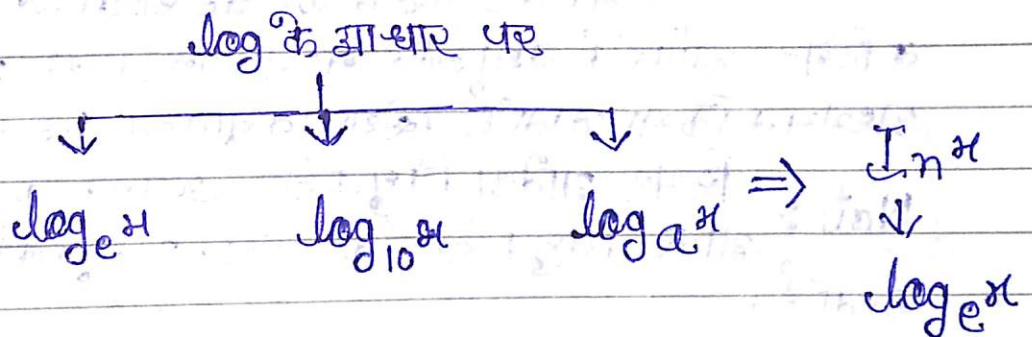 log के आधार पर
logₑx log₁₀x logₐx ⇒ Inx
logₑx